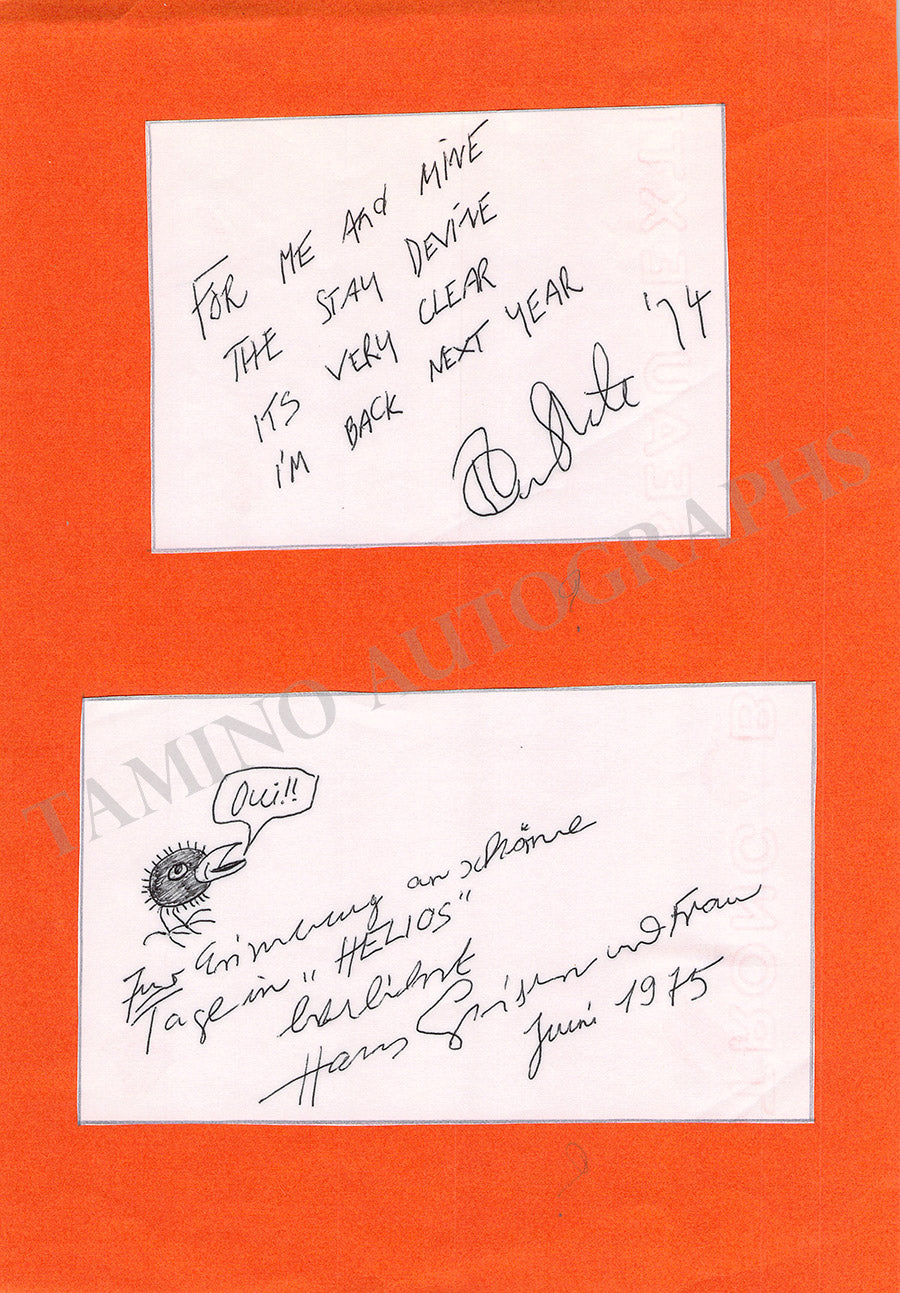 FOR ME And MINE
THE STAY DEVINE
ITS VERY CLEAR
I'M BACK NEXT YEAR
'74
TAMINO AUTOGRAPHS
Oui!!
Zur Erinnerung an schöne
Tage in „HELIOS"
Hans und Frau
Juni 1975